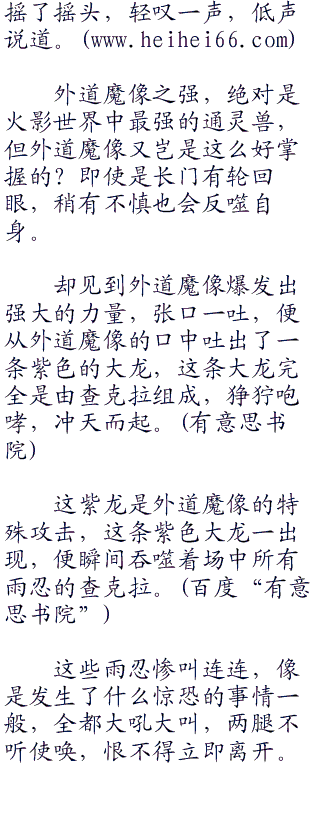 摇了摇头，轻叹一声，低声
说道。(www.heihei66.com)
外道魔像之强，绝对是
火影世界中最强的通灵兽，
但外道魔像又岂是这么好掌
握的？即使是长门有轮回
眼，稍有不慎也会反噬自
身。
却见到外道魔像爆发出
强大的力量，张口一吐，便
从外道魔像的口中吐出了一
条紫色的大龙，这条大龙完
全是由查克拉组成，狰狞咆
哮，冲天而起。(有意思书
院)
这紫龙是外道魔像的特
殊攻击，这条紫色大龙一出
现，便瞬间吞噬着场中所有
雨忍的查克拉。(百度“有意
思书院”)
这些雨忍惨叫连连，像
是发生了什么惊恐的事情一
般，全都大吼大叫，两腿不
听使唤，恨不得立即离开。